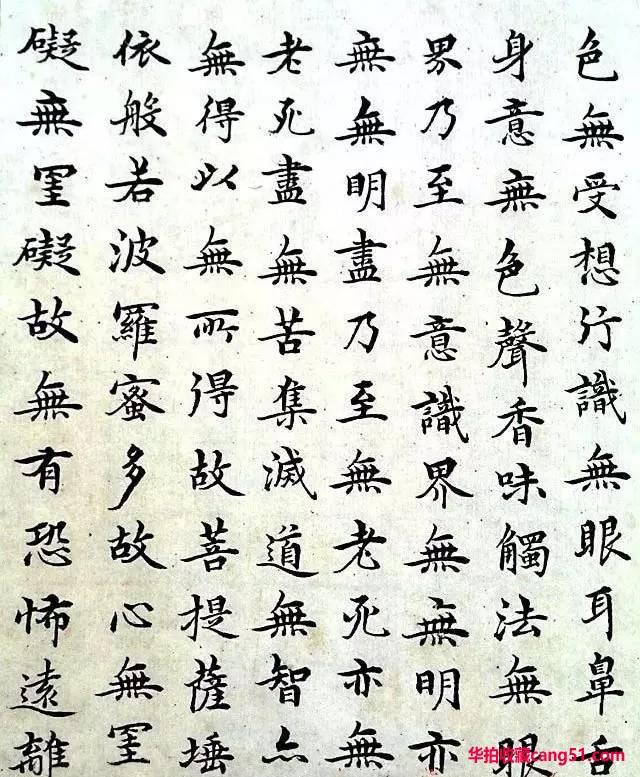 色無受想行識無眼耳鼻舌
身意無色聲香味觸法無眼
界乃至無意識界無無明亦
無無明盡乃至無老死亦無
老死盡無苦集滅道無智亦
無得以無所得故菩提薩埵
依般若波羅蜜多故心無罣
礙無罣礙故無有恐怖遠離
华拍收藏cang51.com